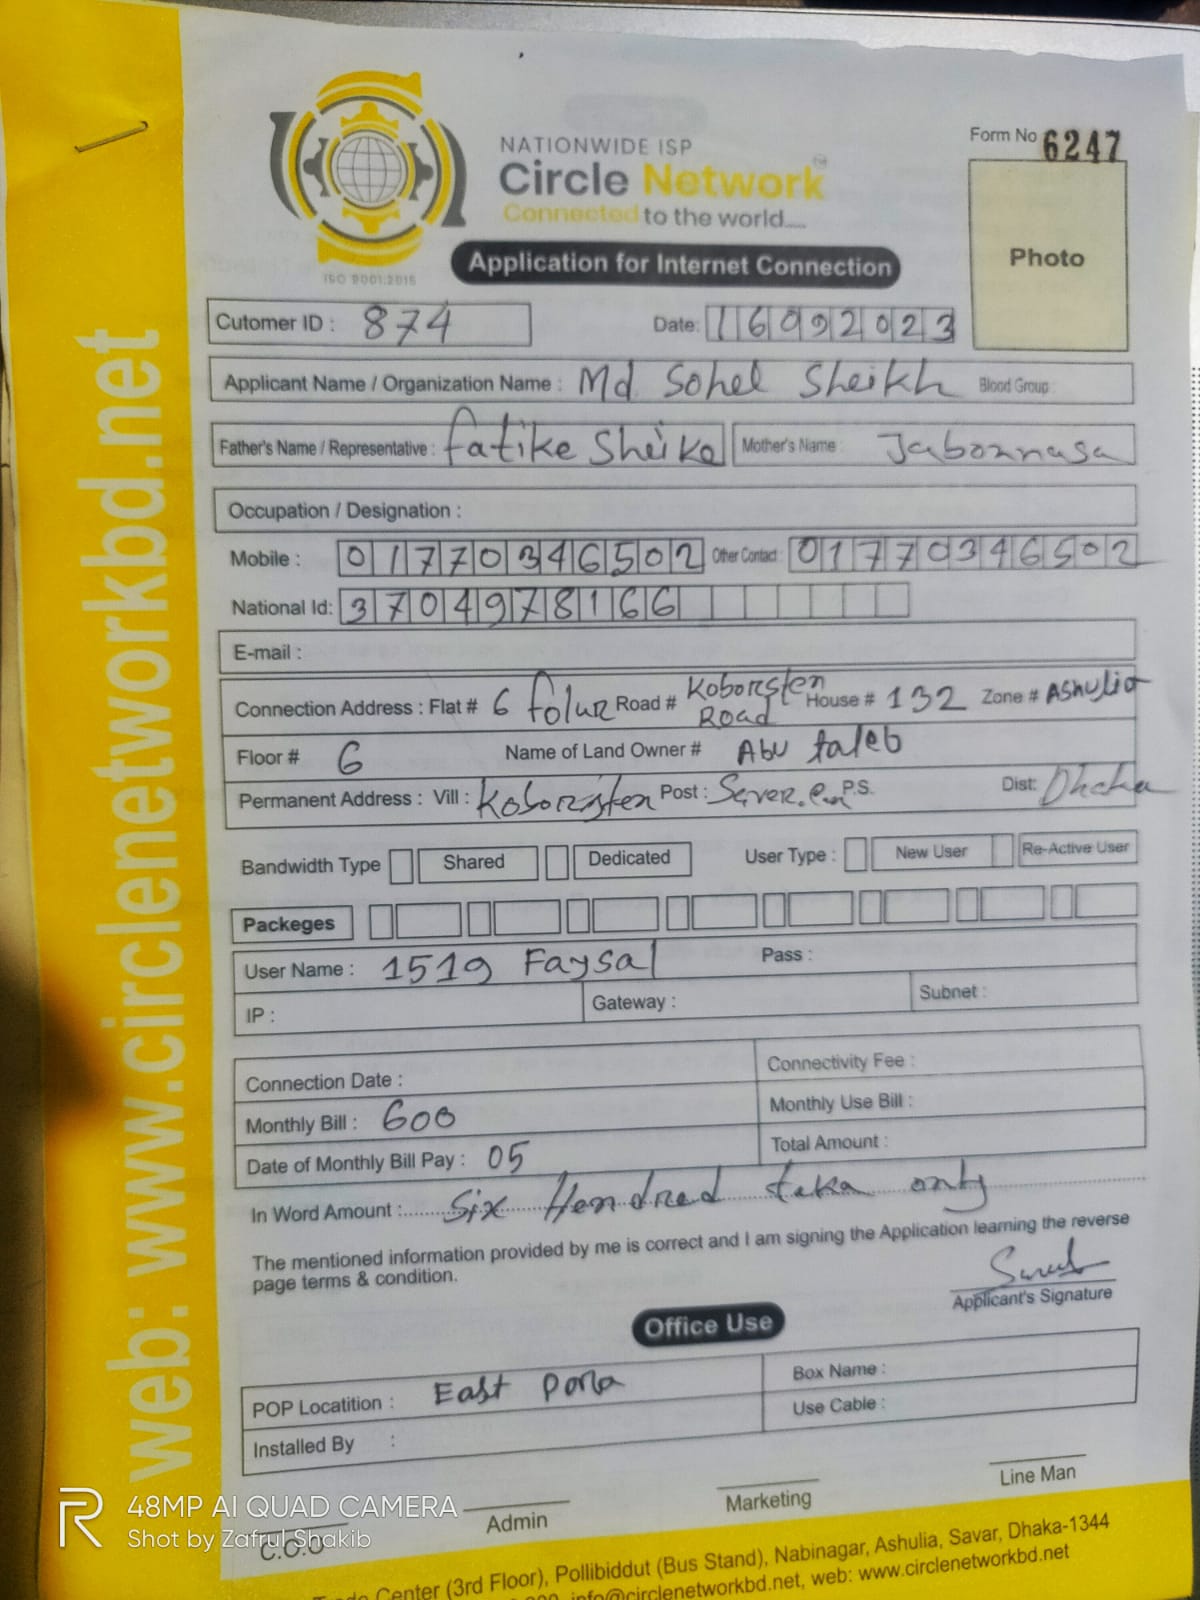 NATIONWIDE ISP
Circle Network™
Connected to the world.....
ISO 9001:2015
Form No 6247
Photo
Application for Internet Connection
Cutomer ID : 874 Date: 16092023
Applicant Name / Organization Name : Md. Sohel Sheikh Blood Group :
Father's Name / Representative : fatike Sheike Mother's Name : Jabonnasa
Occupation / Designation :
Mobile : 01770346502 Other Contact : 01770346502
National Id: 3704978166
E-mail :
Connection Address : Flat # 6 folur Road # Koborsten Road House # 132 Zone # Ashulia
Floor # 6 Name of Land Owner # Abu taleb
Permanent Address : Vill : Koborsten Post : P.S. Dist: Dhaka
Bandwidth Type Shared Dedicated User Type : New User Re-Active User
Packeges
User Name : 1519 Faysal Pass :
IP : Gateway : Subnet :
Connection Date : Connectivity Fee :
Monthly Bill : 600 Monthly Use Bill :
Date of Monthly Bill Pay : 05 Total Amount :
In Word Amount : Six Hendred taka only
The mentioned information provided by me is correct and I am signing the Application learning the reverse
page terms & condition.
Applicant's Signature
Office Use
POP Locatition : East Para Box Name :
Installed By : Use Cable :
C.O.O Admin Marketing Line Man
Center (3rd Floor), Pollibiddut (Bus Stand), Nabinagar, Ashulia, Savar, Dhaka-1344
info@circlenetworkbd.net, web: www.circlenetworkbd.net
web: www.circlenetworkbd.net
48MP AI QUAD CAMERA
Shot by Zafrul Shakib